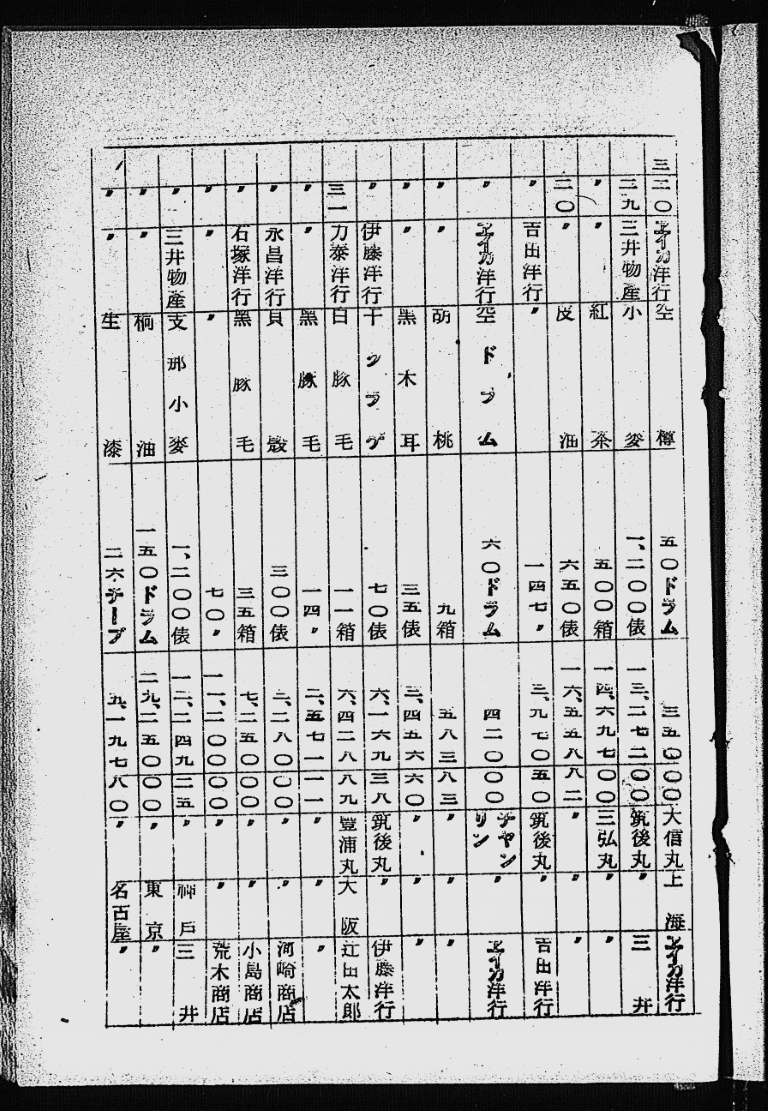 三 二〇 エイカ洋行 空樽 五〇ドラム 三五〇〇〇 大信丸 上海 エイカ洋行
二九 三井物産 小麥 一、二〇〇俵 一三、二七二〇〇 筑後丸 〃 三井
〃 〃 紅茶 五〇〇箱 一四、六九七〇〇 三弘丸 〃 〃
三〇 〃 皮油 六五〇俵 一六、五五八八二 〃 〃 〃
〃 吉田洋行 〃 一四七〃 三、九七〇五〇 筑後丸 〃 吉田洋行
〃 エイカ洋行 空ドラム 六〇ドラム 四二〇〇〇 チヤンリン 〃 エイカ洋行
〃 〃 胡桃 九箱 五八三八三 〃 〃 〃
〃 〃 黒木耳 三五俵 三、四五六六〇 〃 〃 〃
〃 伊藤洋行 干クラゲ 七〇俵 六、一六九三八 筑後丸 〃 伊藤洋行
三一 力泰洋行 白豚毛 一一箱 六、四二八八九 豊浦丸 大阪 辻田太郎
〃 〃 黒豚毛 一四〃 二、五七一一一 〃 〃 〃
〃 永昌洋行 貝殻 三〇〇俵 三、二八〇〇〇 〃 〃 河崎商店
〃 石塚洋行 黒豚毛 三五箱 七、二五〇〇〇 〃 〃 小島商店
〃 〃 〃 七〇〃 一一、二〇〇〇〇 〃 〃 荒木商店
〃 三井物産 支那小麥 一、二〇〇俵 一二、二四九二五 〃 神戸 三井
〃 〃 桐油 一五〇ドラム 二九、二五〇〇〇 〃 東京 〃
〃 〃 生漆 二六チーブ 五、一九七八〇 〃 名古屋 〃